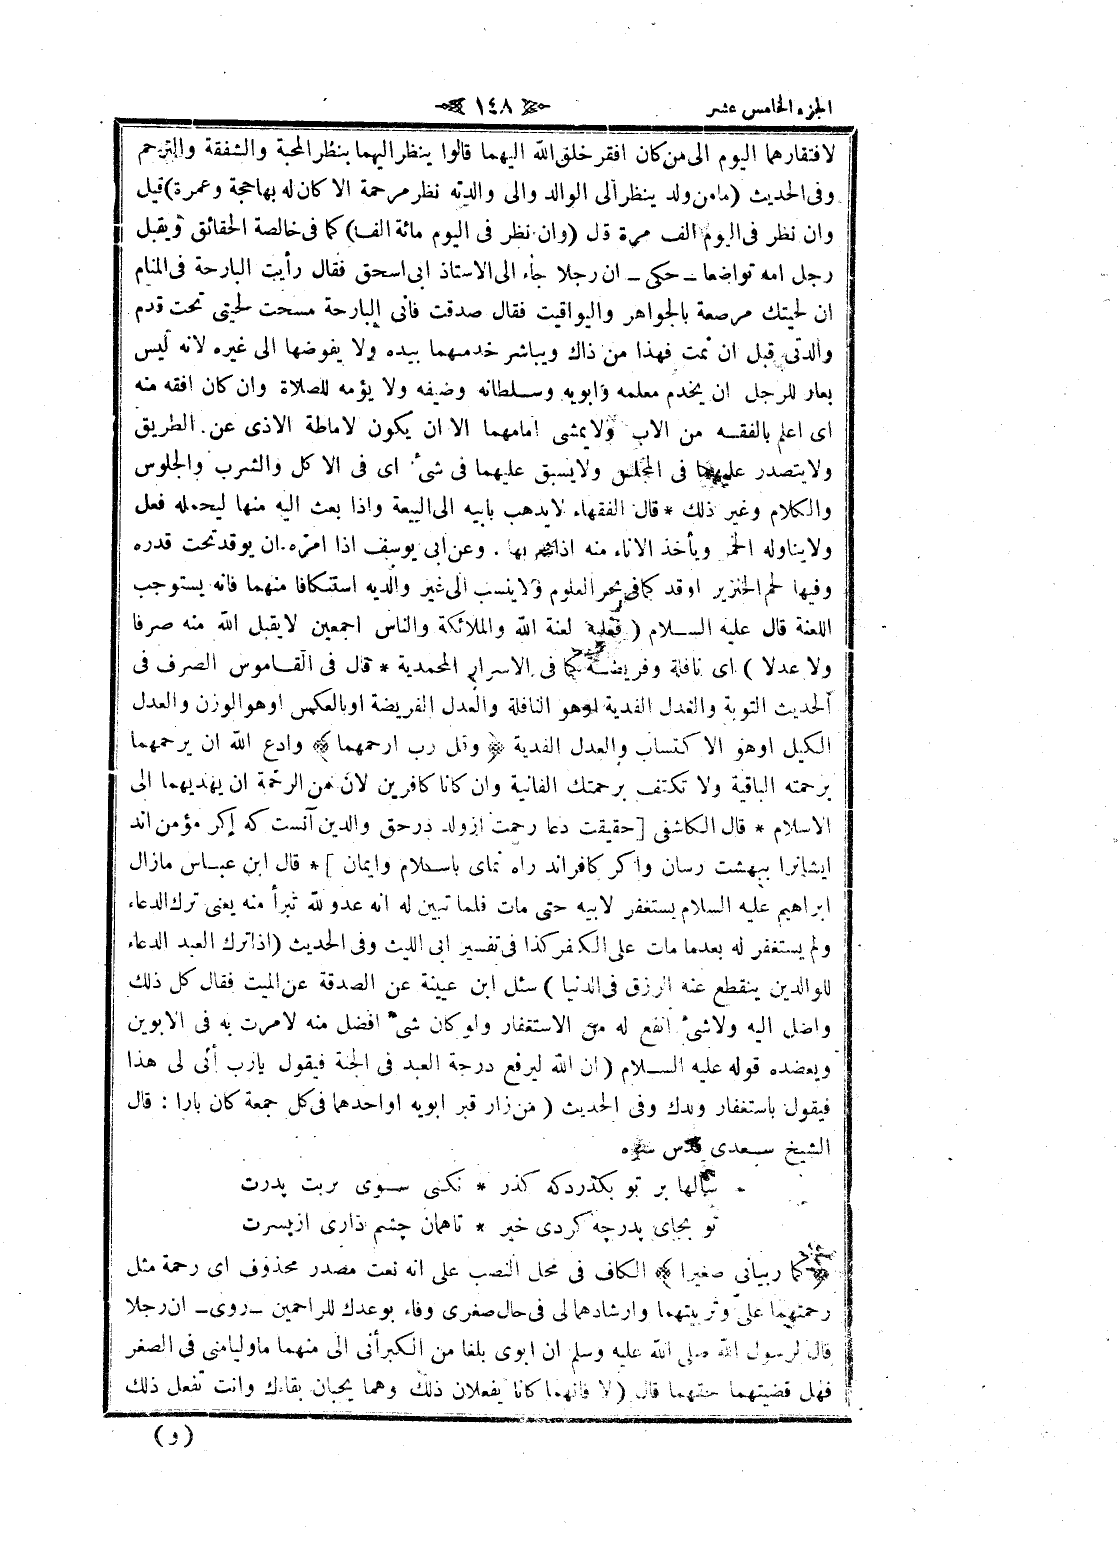 الجزء الخامس عشر
١٤٨
لافتقارهما اليوم الى من كان افقر خلق الله اليهما قالوا ينظر اليهما بنظر المحبة والشفقة والترحم
وفى الحديث (مامن ولد ينظر الى الوالد والى والدته نظر مرحمة الا كان له بهاحجة وعمرة) قيل
وان نظر فى اليوم الف مرة قال (وان نظر فى اليوم مائة الف) كما فى خالصة الحقائق ويقبل
رجل امه تواضعا ـ حكى ـ ان رجلا جاء الى الاستاذ ابى اسحق فقال رأيت البارحة فى المنام
ان لحيتك مرصعة بالجواهر واليواقيت فقال صدقت فانى البارحة مسحت لحيتى تحت قدم
والدتى قبل ان نمت فهذا من ذاك ويباشر خدمتهما بيده ولا يفوضها الى غيره لانه ليس
بعار للرجل ان يخدم معلمه وابويه وسلطانه وضيفه ولا يؤمه للصلاة وان كان افقه منه
اى اعلم بالفقه من الاب ولايمشى امامهما الا ان يكون لاماطة الاذى عن الطريق
ولايتصدر عليهما فى المجلس ولايسبق عليهما فى شىء اى فى الاكل والشرب والجلوس
والكلام وغير ذلك * قال الفقهاء لايذهب بابيه الى البيعة واذا بعث اليه منها ليحمله فعل
ولايناوله الخمر ويأخذ الاناء منه اذا شربها . وعن ابى يوسف اذا امره ان يوقد تحت قدره
وفيها لحم الخنزير اوقد كما فى بحر العلوم ولاينسب الى غير والديه استنكافا منهما فانه يستوجب
اللعنة قال عليه السلام ( فعليه لعنة الله والملائكة والناس اجمعين لايقبل الله منه صرفا
ولا عدلا ) اى نافلة وفريضة كما فى الاسرار المحمدية * قال فى القاموس الصرف فى
الحديث التوبة والعدل الفدية اوهو النافلة والعدل الفريضة اوبالعكس اوهو الوزن والعدل
الكيل اوهو الاكتساب والعدل الفدية ﴿ وقل رب ارحمهما ﴾ وادع الله ان يرحمهما
برحمته الباقية ولا تكتف برحمتك الفانية وان كانا كافرين لان من الرحمة ان يهديهما الى
الاسلام * قال الكاشفى [حقيقت دعا رحمت ازولد درحق والدين آنست كه اكر مؤمن اند
ايشانرا ببهشت رسان واكر كافراند راه نماى باسلام وايمان ] * قال ابن عباس مازال
ابراهيم عليه السلام يستغفر لابيه حتى مات فلما تبين له انه عدو لله تبرأ منه يعنى ترك الدعاء
ولم يستغفر له بعدما مات على الكفر كذا فى تفسير ابى الليث وفى الحديث (اذا ترك العبد الدعاء
للوالدين ينقطع عنه الرزق فى الدنيا ) سئل ابن عيينة عن الصدقة عن الميت فقال كل ذلك
واصل اليه ولاشىء انفع له من الاستغفار ولو كان شىء افضل منه لامرت به فى الابوين
ويعضده قوله عليه السلام ( ان الله ليرفع درجة العبد فى الجنة فيقول يارب أنى لى هذا
فيقول باستغفار ولدك وفى الحديث ( من زار قبر ابويه اواحدهما فى كل جمعة كان بارا : قال
الشيخ سعدى قدس سره
سالها بر تو بكذرد كه كذر * نكنى سوى تربت پدرت
تو بجاى پدر چه كردى خير * تاهمان چشم دارى از پسرت
﴿ كما ربيانى صغيرا ﴾ الكاف فى محل النصب على انه نعت مصدر محذوف اى رحمة مثل
رحمتهما على وتربيتهما وارشادهما لى فى حال صغرى وفاء بوعدك للراحمين ـ روى ـ ان رجلا
قال لرسول الله صلى الله عليه وسلم ان ابوى بلغا من الكبر أنى الى منهما ماوليامنى فى الصغر
فهل قضيتهما حقهما قال ( لا فانهما كانا يفعلان ذلك وهما يحبان بقاءك وانت تفعل ذلك
(و)